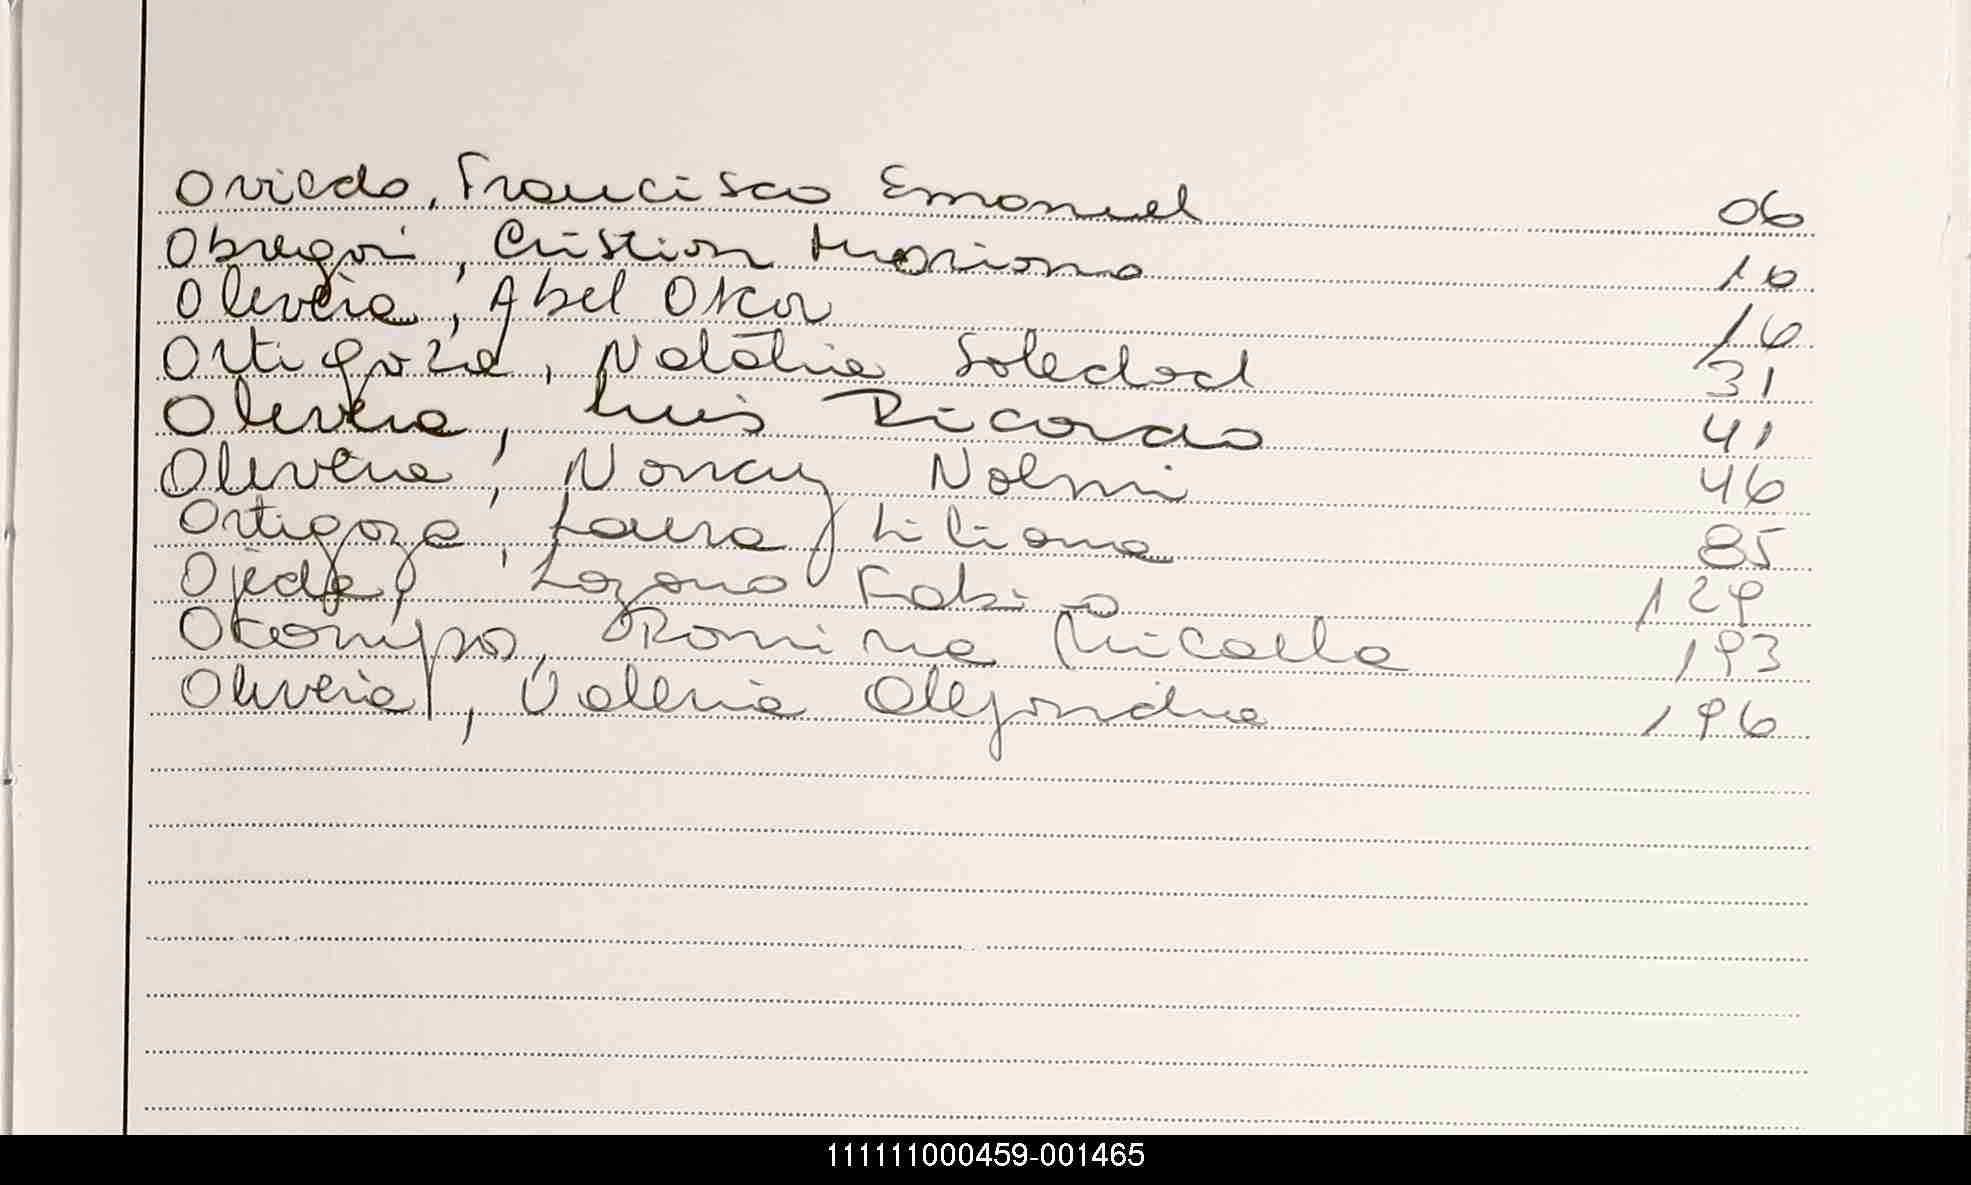 Oviedo, Francisco Emanuel 06
Obregón, Cristian Mariano 10
Olivera, Abel Oscar 16
Ortigoza, Natália Soledad 31
Olivera, Luis Ricardo 41
Olivera, Nancy Noemi 46
Ortigoza, Laura Liliana 85
Ojeda, Lozano Fabio 129
Ocampo, Romina Micaela 193
Olivera, Valeria Alejandra 196
111111000459-001465